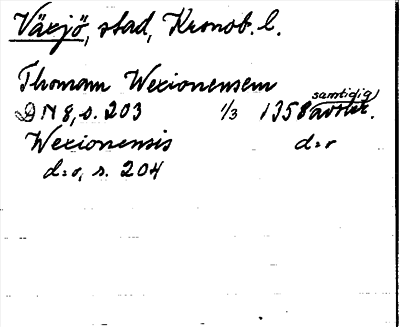 Växjö, stad, Kronob. l.
Thomam Wexionensem
DN 8, s. 203 1/3 1358 samtidig avskr.
Wexionensis d:o
d:o, s. 204